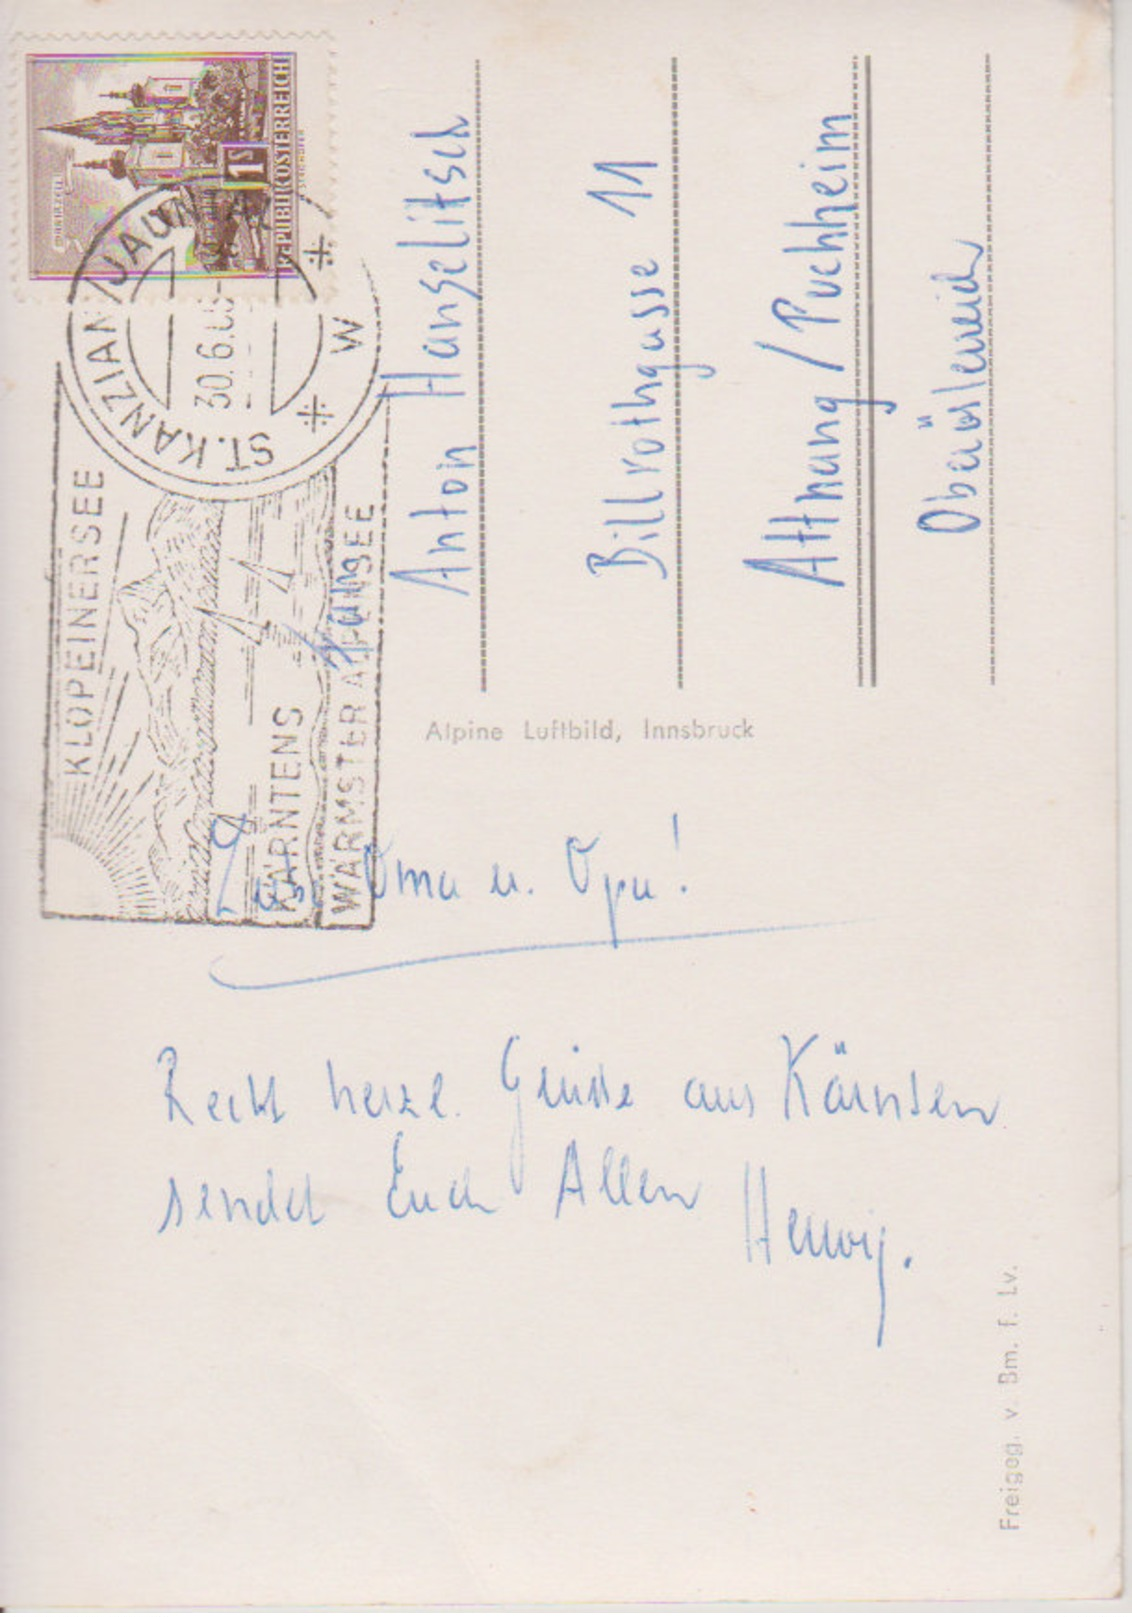 REPUBLIK ÖSTERREICH
1 S
MARIAZELL
ST. KANZIAN
30.6.
W
KLOPEINERSEE
KÄRNTENS
WÄRMSTER ALPENSEE
Fam
Anton Hangelitsch
Billrothgasse 11
Attnang / Puchheim
Oberösterreich
Alpine Luftbild, Innsbruck
Oma u. Opa!
Recht herzl. Grüsse aus Kärnten
sendet Euch Allen
Herwig.
Freigeg. v. Bm. f. Lv.